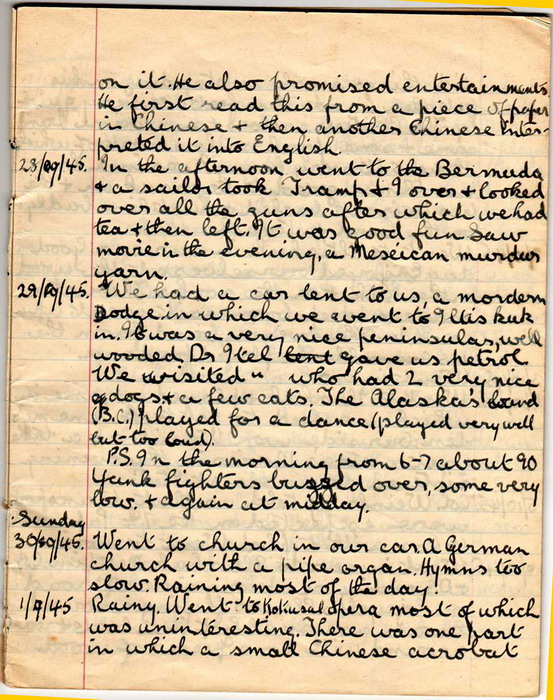 on it. He also promised entertainments.
He first read this from a piece of paper
in Chinese + then another Chinese inter-
preted it into English
28/09/45. In the afternoon went to the Bermuda
+ a sailor took Tramp + I over + looked
over all the guns after which we had
tea + then left. It was good fun Saw
movie in the evening, a Mescican murder
yarn.
29/09/45. We had a car lent to us, a mordern
Dodge in which we went to Iltis kuk
in. It was a very nice peninsulas, well
wooded Dr Itel gave us petrol.
We visited " who had 2 very nice
dogs + a few cats. The Alaska's band
(B.C.) played for a dance (played very well
but too loud).
P.S. In the morning from 6-7 about 90
Yank fighters buzzed over, some very
low. + again at midday.
Sunday
30/09/45. Went to church in our car. A German
church with a pipe organ. Hymns too
slow. Raining most of the day.
1/9/45 Rainy. Went to Kokusai Opera most of which
was uninteresting. There was one part
in which a small Chinese acrobat